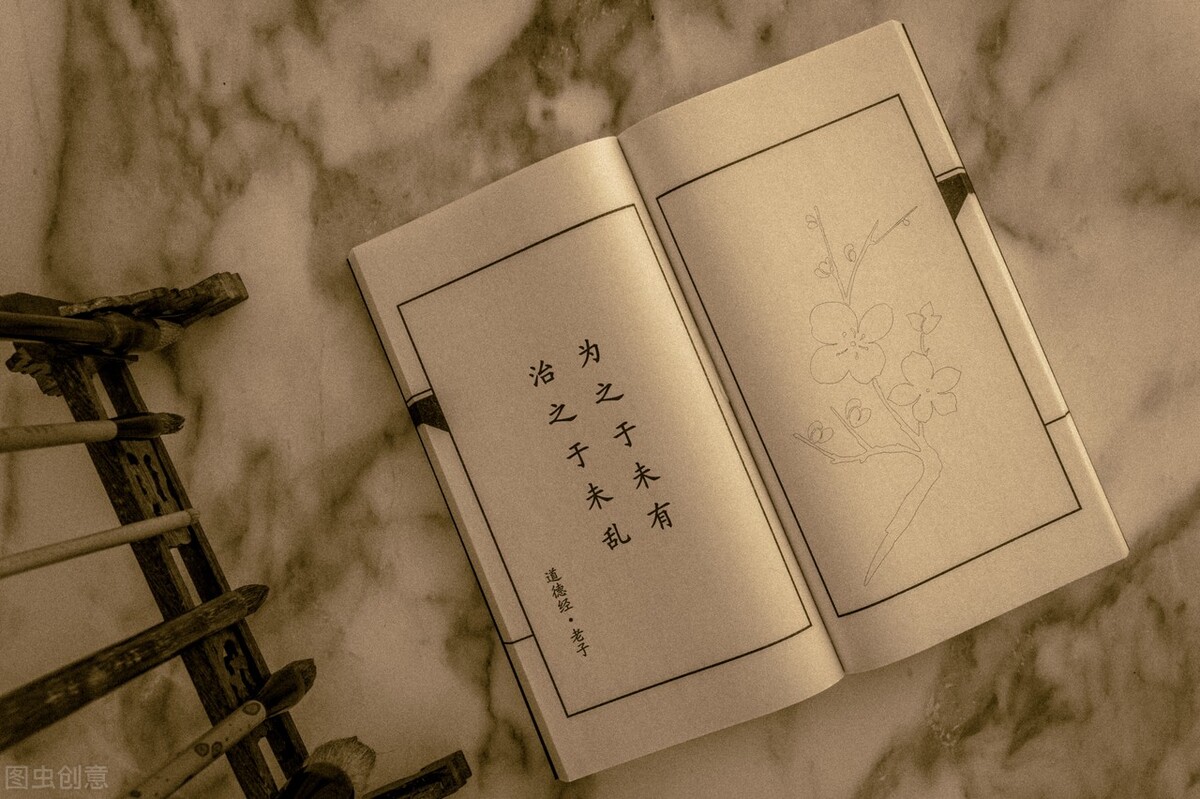 为之于未有
治之于未乱
道德经·老子
图虫创意